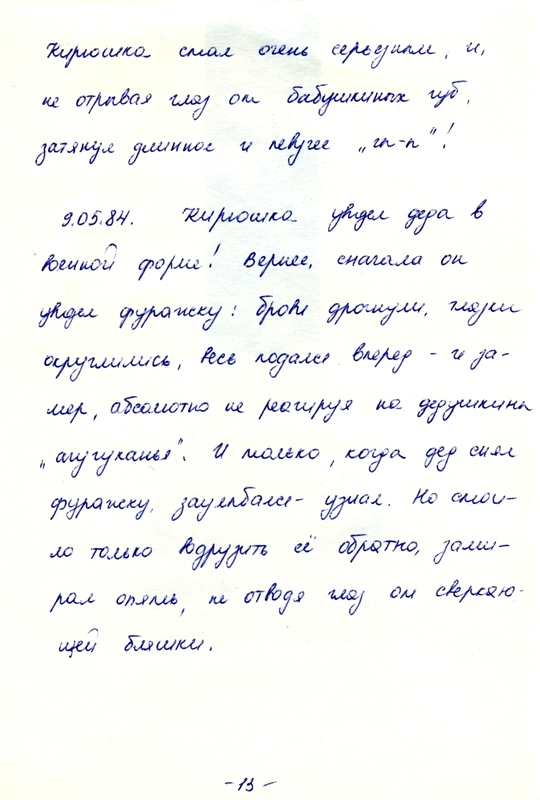 Кирюшка стал очень серьезным, и,
не отрывая глаз от бабушкиных губ,
затянул длинное и певучее „гы-ы"!
9.05.84. Кирюшка увидел деда в
военной форме! Вернее, сначала он
увидел фуражку: брови дрогнули, глазки
округлились, весь подался вперед - и за-
мер, абсолютно не реагируя на дедушкины
„агугуканья". И только, когда дед снял
фуражку, заулыбался - узнал. Но стои-
ло только водрузить её обратно, зами-
рал опять, не отводя глаз от сверкаю-
щей бляшки.
- 13 -